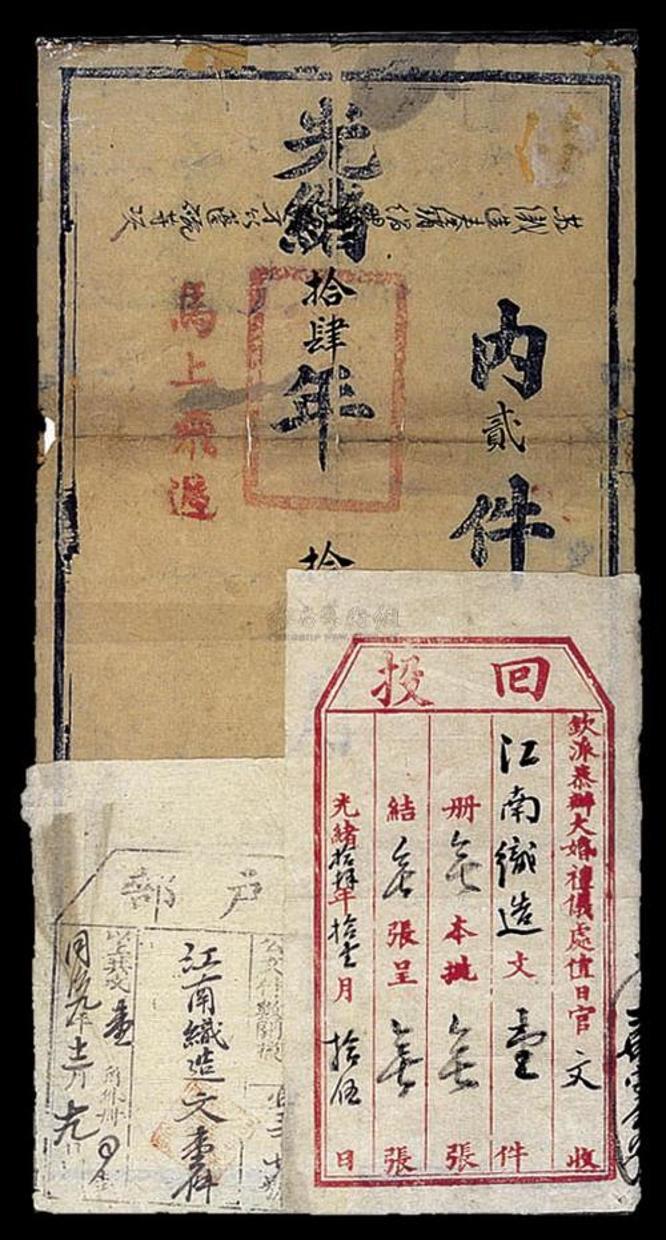 内貳件
光緒拾肆年拾
馬上飛遞
回投
欽派恭辦大婚禮儀處值日官文收
江南織造文壹件
册無本批無張
結無張呈無張
光緒拾肆年拾壹月拾伍日
戶部
江南織造文壹件
同治九年十二月十九